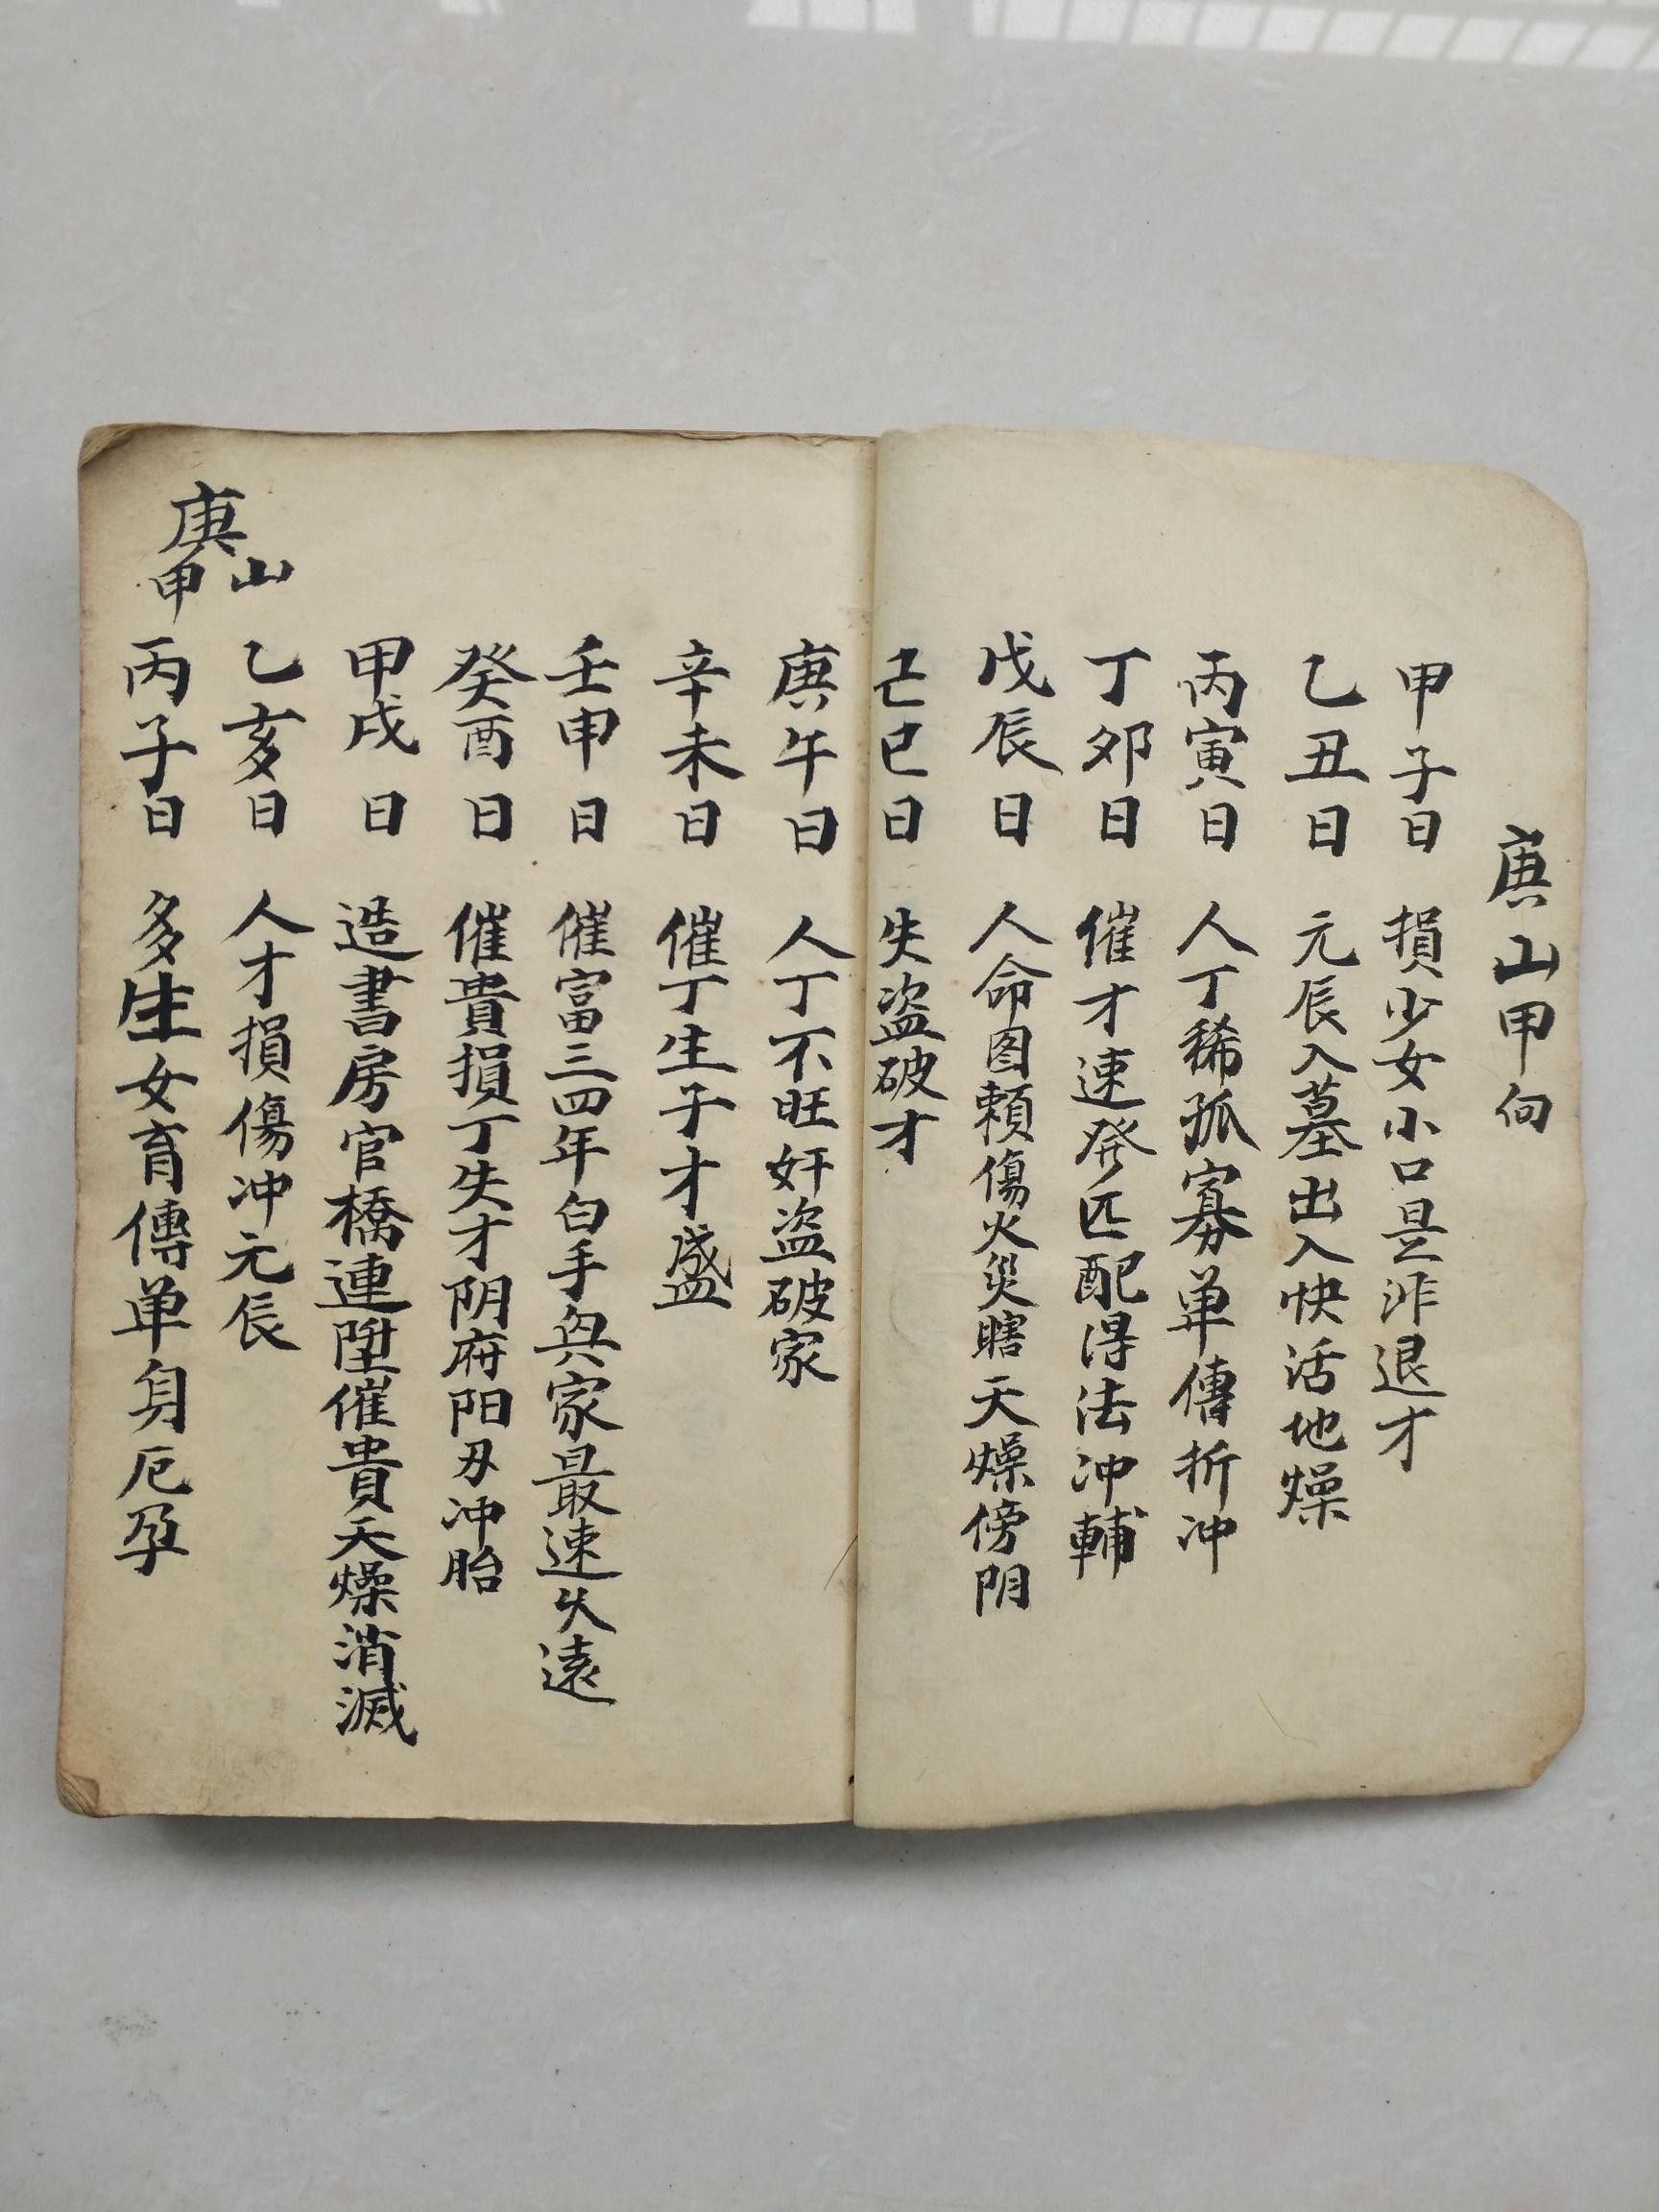 庚山甲向
甲子日 損少女小口是非退才
乙丑日 元辰入墓出入快活地燥
丙寅日 人丁稀孤寡单傳折冲
丁卯日 催才速發匹配得法冲輔
戊辰日 人命图頼傷火災瞎天燥傍阴
己巳日 失盗破才
庚午日 人丁不旺奸盗破家
辛未日 催丁生子才盛
壬申日 催富三四年白手興家最速久遠
癸酉日 催貴損丁失才阴府阳刃冲胎
甲戌日 造書房官橋連陞催貴天燥消滅
庚山
甲
乙亥日 人才損傷冲元辰
丙子日 多生女育傳单身厄孕